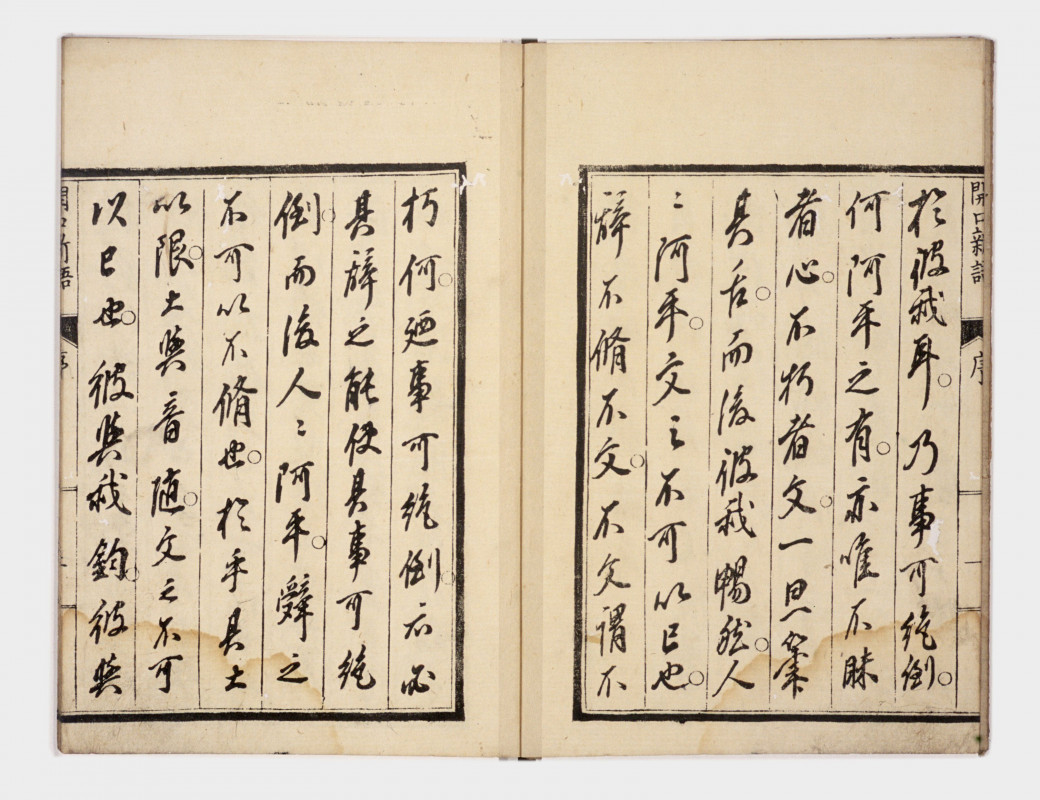 開口新語 序 一
於彼我耳。乃事可絶倒。
何阿平之有。亦唯不昧
者心。不朽者文。一
其舌。而後彼我暢然。人
〻阿平。文之不可以已也。
辭不脩不文。不文謂不
朽何。廼事可絶倒。否必
其辭之能使其事可絶
倒。而後人〻阿平。辭之
不可以不脩也。於乎其土
以限。土與音随。文之不可
以已也。彼與我鈞。彼與
開口新語 序